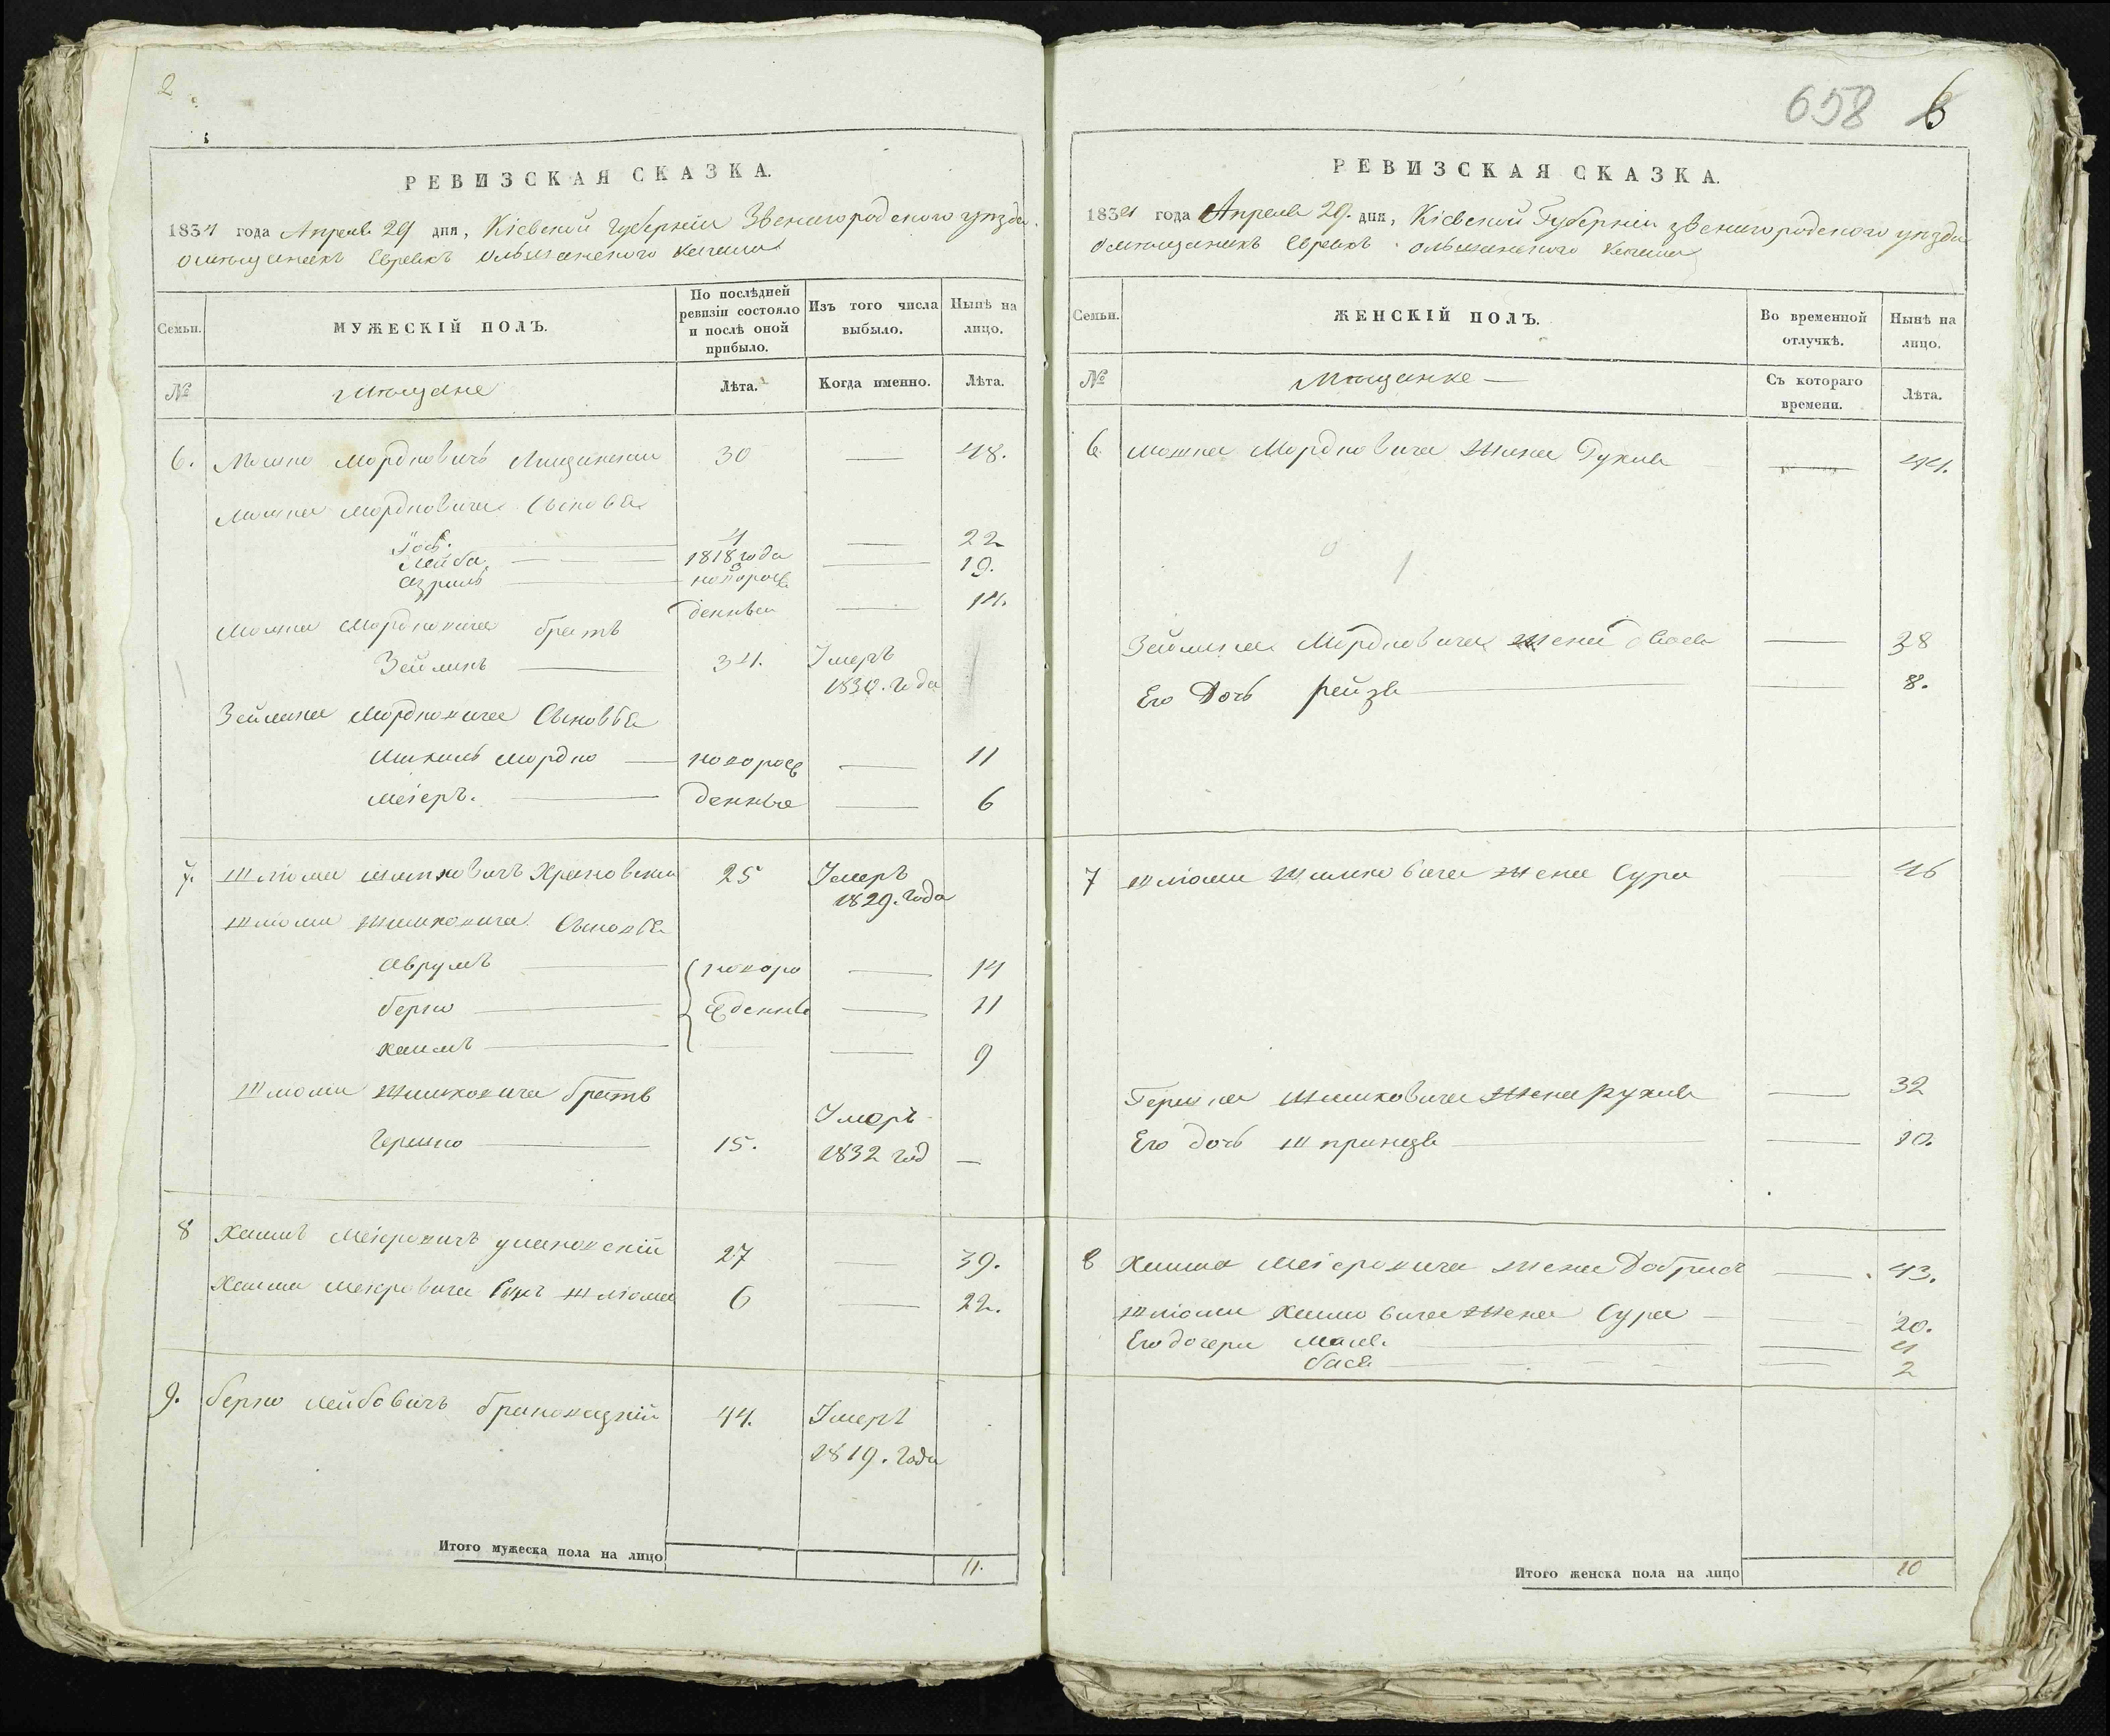 2
РЕВИЗСКАЯ СКАЗКА.
1834 года Апреля 29 дня, Кіевской губерніи Звенигородского уезда
омещанехъ Евреяхъ Ольшанского Кагала
Семьи.
МУЖЕСКІЙ ПОЛЪ.
По послѣдней ревизіи состояло и послѣ оной прибыло.
Изъ того числа выбыло.
Нынѣ на лицо.
№
мещане
Лѣта.
Когда именно.
Лѣта.
6. Мошко Мордковичъ 30 — 48.
Мошка Мордковича Сыновья
Іось. 4 — 22
Лейба 1818 года — 19.
Азриль новорож
денные — 14.
Мошка Мордковича братъ
Зейликъ 34. Умеръ
1830. года
Зейлика Мордковича Сыновья
Мордко новорож — 11
Меіеръ. денные — 6
7. Шліома Шмиковичъ 25 Умеръ
1829. года
Шліомы Шмиковича Сыновья
Аврумъ новоро — 14
берко жденные — 11
хаимъ — 9
Шліомы Шмиковича братъ
Умеръ
Гершко 15. 1832 год —
8 Хаимъ Меіеровичъ умановскій 27 — 39.
Хаима Меіеровича Сынъ Шліома 6 — 22.
9. берко Лейбовичъ 44. Умеръ
1819. года
Итого мужеска пола на лицо 11.
658 6
РЕВИЗСКАЯ СКАЗКА.
1834 года Апреля 29. дня, Кіевской Губерніи звенигородского уезда
омещанехъ Евреяхъ ольшанского Кагала
Семьи.
ЖЕНСКІЙ ПОЛЪ.
Во временной отлучкѣ.
Нынѣ на лицо.
№
Мещанке —
Съ котораго времени.
Лѣта.
6 Мошка Мордковича Жена Рухля — 44.
Зейлика Мордковича жена — 38
Его Дочь рейзя — 8.
7 Шліомы Шмиковича жена Сура — 46
Гершка Шмиковича Жена Рухля — 32
Его дочь Шпринця — 10.
8 Хаима Меіеровича жена Добрись — 43.
Шліомы Хаимовича Жена Сура — 20.
Его дочери Маля — 4
бася — 2
Итого женска пола на лицо 10